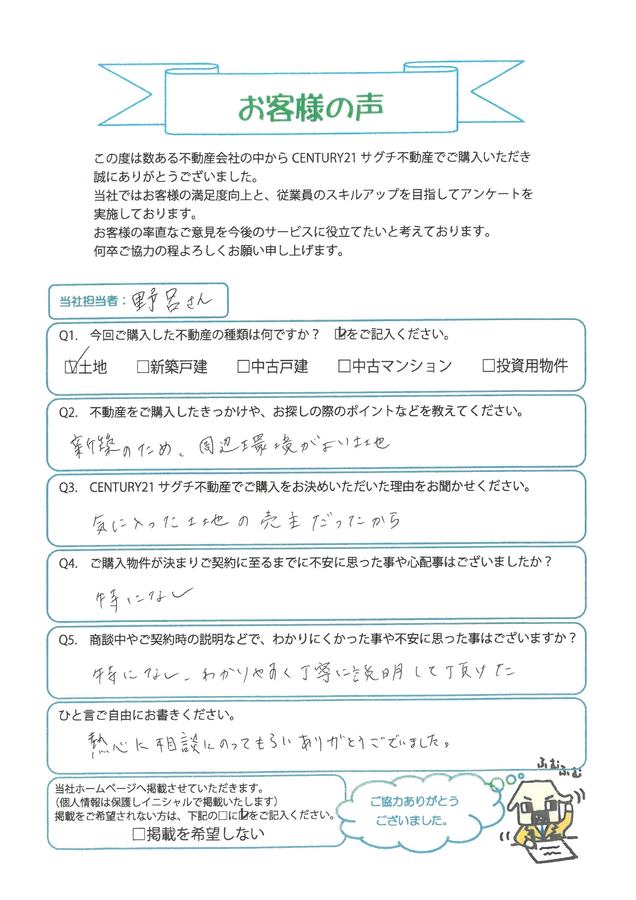 お客様の声
この度は数ある不動産会社の中から CENTURY21 サグチ不動産でご購入いただき
誠にありがとうございました。
当社ではお客様の満足度向上と、従業員のスキルアップを目指してアンケートを
実施しております。
お客様の率直なご意見を今後のサービスに役立てたいと考えております。
何卒ご協力の程よろしくお願い申し上げます。
当社担当者：野呂さん
Q1. 今回ご購入した不動産の種類は何ですか？ ☑をご記入ください。
☑土地 □新築戸建 □中古戸建 □中古マンション □投資用物件
Q2. 不動産をご購入したきっかけや、お探しの際のポイントなどを教えてください。
新築のため。周辺環境がよい土地
Q3. CENTURY21 サグチ不動産でご購入をお決めいただいた理由をお聞かせください。
気に入った土地の売主だったから
Q4. ご購入物件が決まりご契約に至るまでに不安に思った事や心配事はございましたか？
特になし
Q5. 商談中やご契約時の説明などで、わかりにくかった事や不安に思った事はございますか？
特になし、わかりやすく丁寧に説明して頂けた
ひと言ご自由にお書きください。
熱心に相談にのってもらいありがとうございました。
当社ホームページへ掲載させていただきます。
（個人情報は保護しイニシャルで掲載いたします）
掲載をご希望されない方は、下記の□に☑をご記入ください。
□掲載を希望しない
ご協力ありがとう
ございました。
ふむふむ